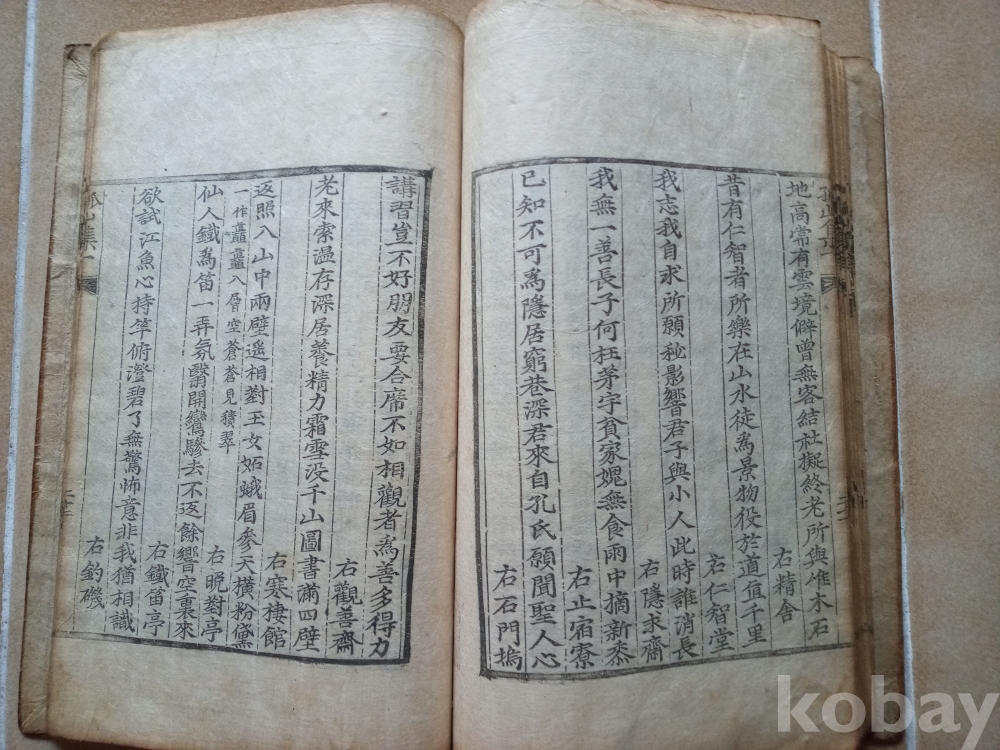 地高常有雲境僻曾無客結社擬終老所與惟木石
右精舍
昔有仁智者所樂在山水徒爲景物役於道值千里
右仁智堂
我忘我自求所願秘影響君子與小人此時誰消長
右隱求齋
我無一善長子何枉茅宇貧家媿無食雨中摘新黍
右止宿寮
已知不可爲隱居窮巷深君來自孔氏願聞聖人心
右石門塢
講習豈不好朋友要合席不如相觀者爲善多得力
右觀善齋
老來索溫存深居養精力霜雪没千山圖書滿四壁
右寒棲館
返照入山中兩壁遥相對玉女妬蛾眉參天橫粉黛
一作矗矗入層空蒼蒼見積翠
右晩對亭
仙人鐵爲笛一弄氛翳開鸞驂去不返餘響空裏來
右鐵笛亭
欲試江魚心持竿俯澄碧了無驚怖意非我猶相識
右釣磯
山集一
kobay